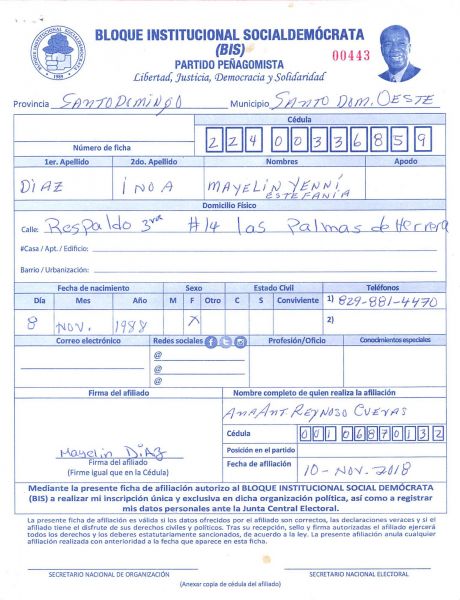 BLOQUE INSTITUCIONAL SOCIALDEMÓCRATA
(BIS)
00443
PARTIDO PEÑAGOMISTA
Libertad, Justicia, Democracia y Solidaridad
Provincia SANTO DOMINGO Municipio SANTO DOM. OESTE
Cédula
Número de ficha 22400336859
1er. Apellido 2do. Apellido Nombres Apodo
DIAZ INOA MAYELIN YENNÍ
ESTEFANÍA
Domicilio Físico
Calle: Respaldo 3ra #14 las Palmas de Herrera
#Casa / Apt. / Edificio:
Barrio / Urbanización:
Fecha de nacimiento Sexo Estado Civil Teléfonos
Día Mes Año M F Otro C S Conviviente 1) 829-881-4470
8 NOV. 1988 X 2)
Correo electrónico Redes sociales Profesión/Oficio Conocimientos especiales
@
@
@
Firma del afiliado Nombre completo de quien realiza la afiliación
REYNOSO CUEVAS
Cédula 00106870132
Mayelin DiAZ Posición en el partido
Firma del afiliado
(Firme igual que en la Cédula) Fecha de afiliación 10-NOV. 2018
Mediante la presente ficha de afiliación autorizo al BLOQUE INSTITUCIONAL SOCIAL DEMÓCRATA
(BIS) a realizar mi inscripción única y exclusiva en dicha organización política, así como a registrar
mis datos personales ante la Junta Central Electoral.
La presente ficha de afiliación es válida si los datos ofrecidos por el afiliado son correctos, las declaraciones veraces y si el
afiliado tiene el disfrute de sus derechos civiles y políticos. Tras su recepción, sello y firma autorizadas el afiliado ejercerá
todos los derechos y los deberes estatutariamente sancionados, de acuerdo a la ley. La presente afiliación anula cualquier
afiliación realizada con anterioridad a la fecha que aparece en esta ficha.
SECRETARIO NACIONAL DE ORGANIZACIÓN SECRETARIO NACIONAL ELECTORAL
(Anexar copia de cédula del afiliado)